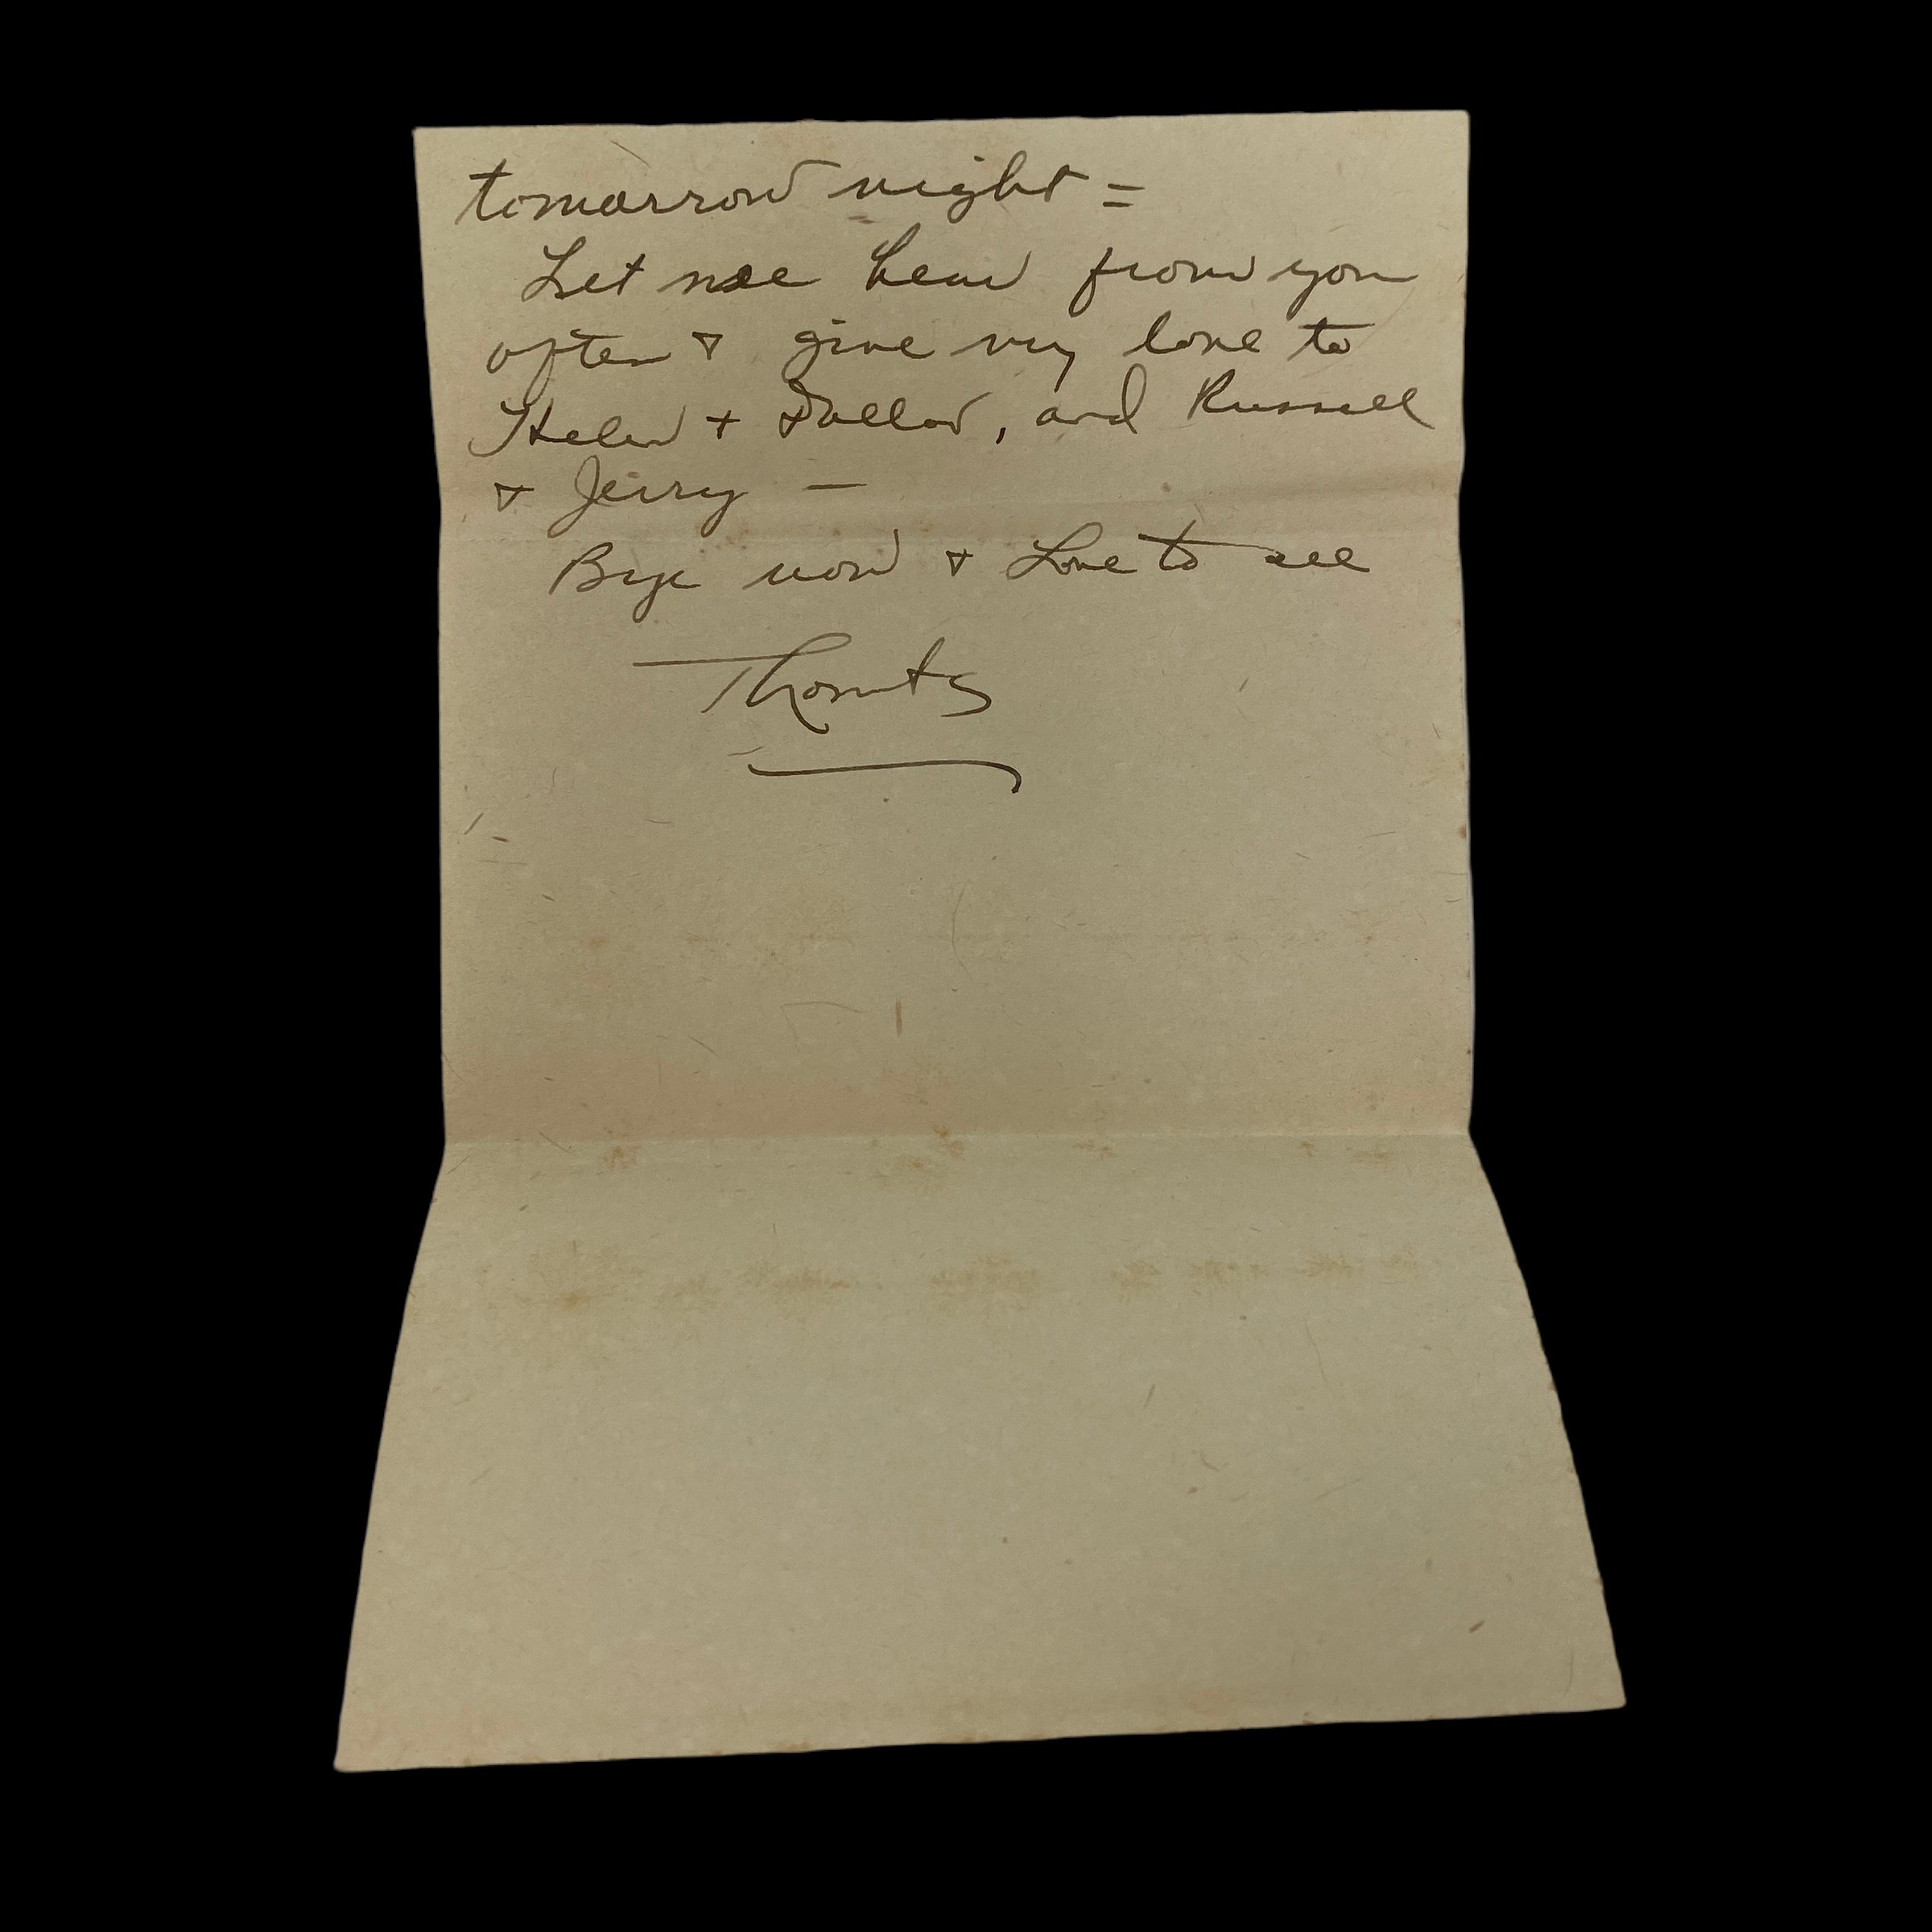 tomorrow night =
Let me hear from you
often & give my love to
Helen + and Russell
& Jerry —
Bye now & Love to all